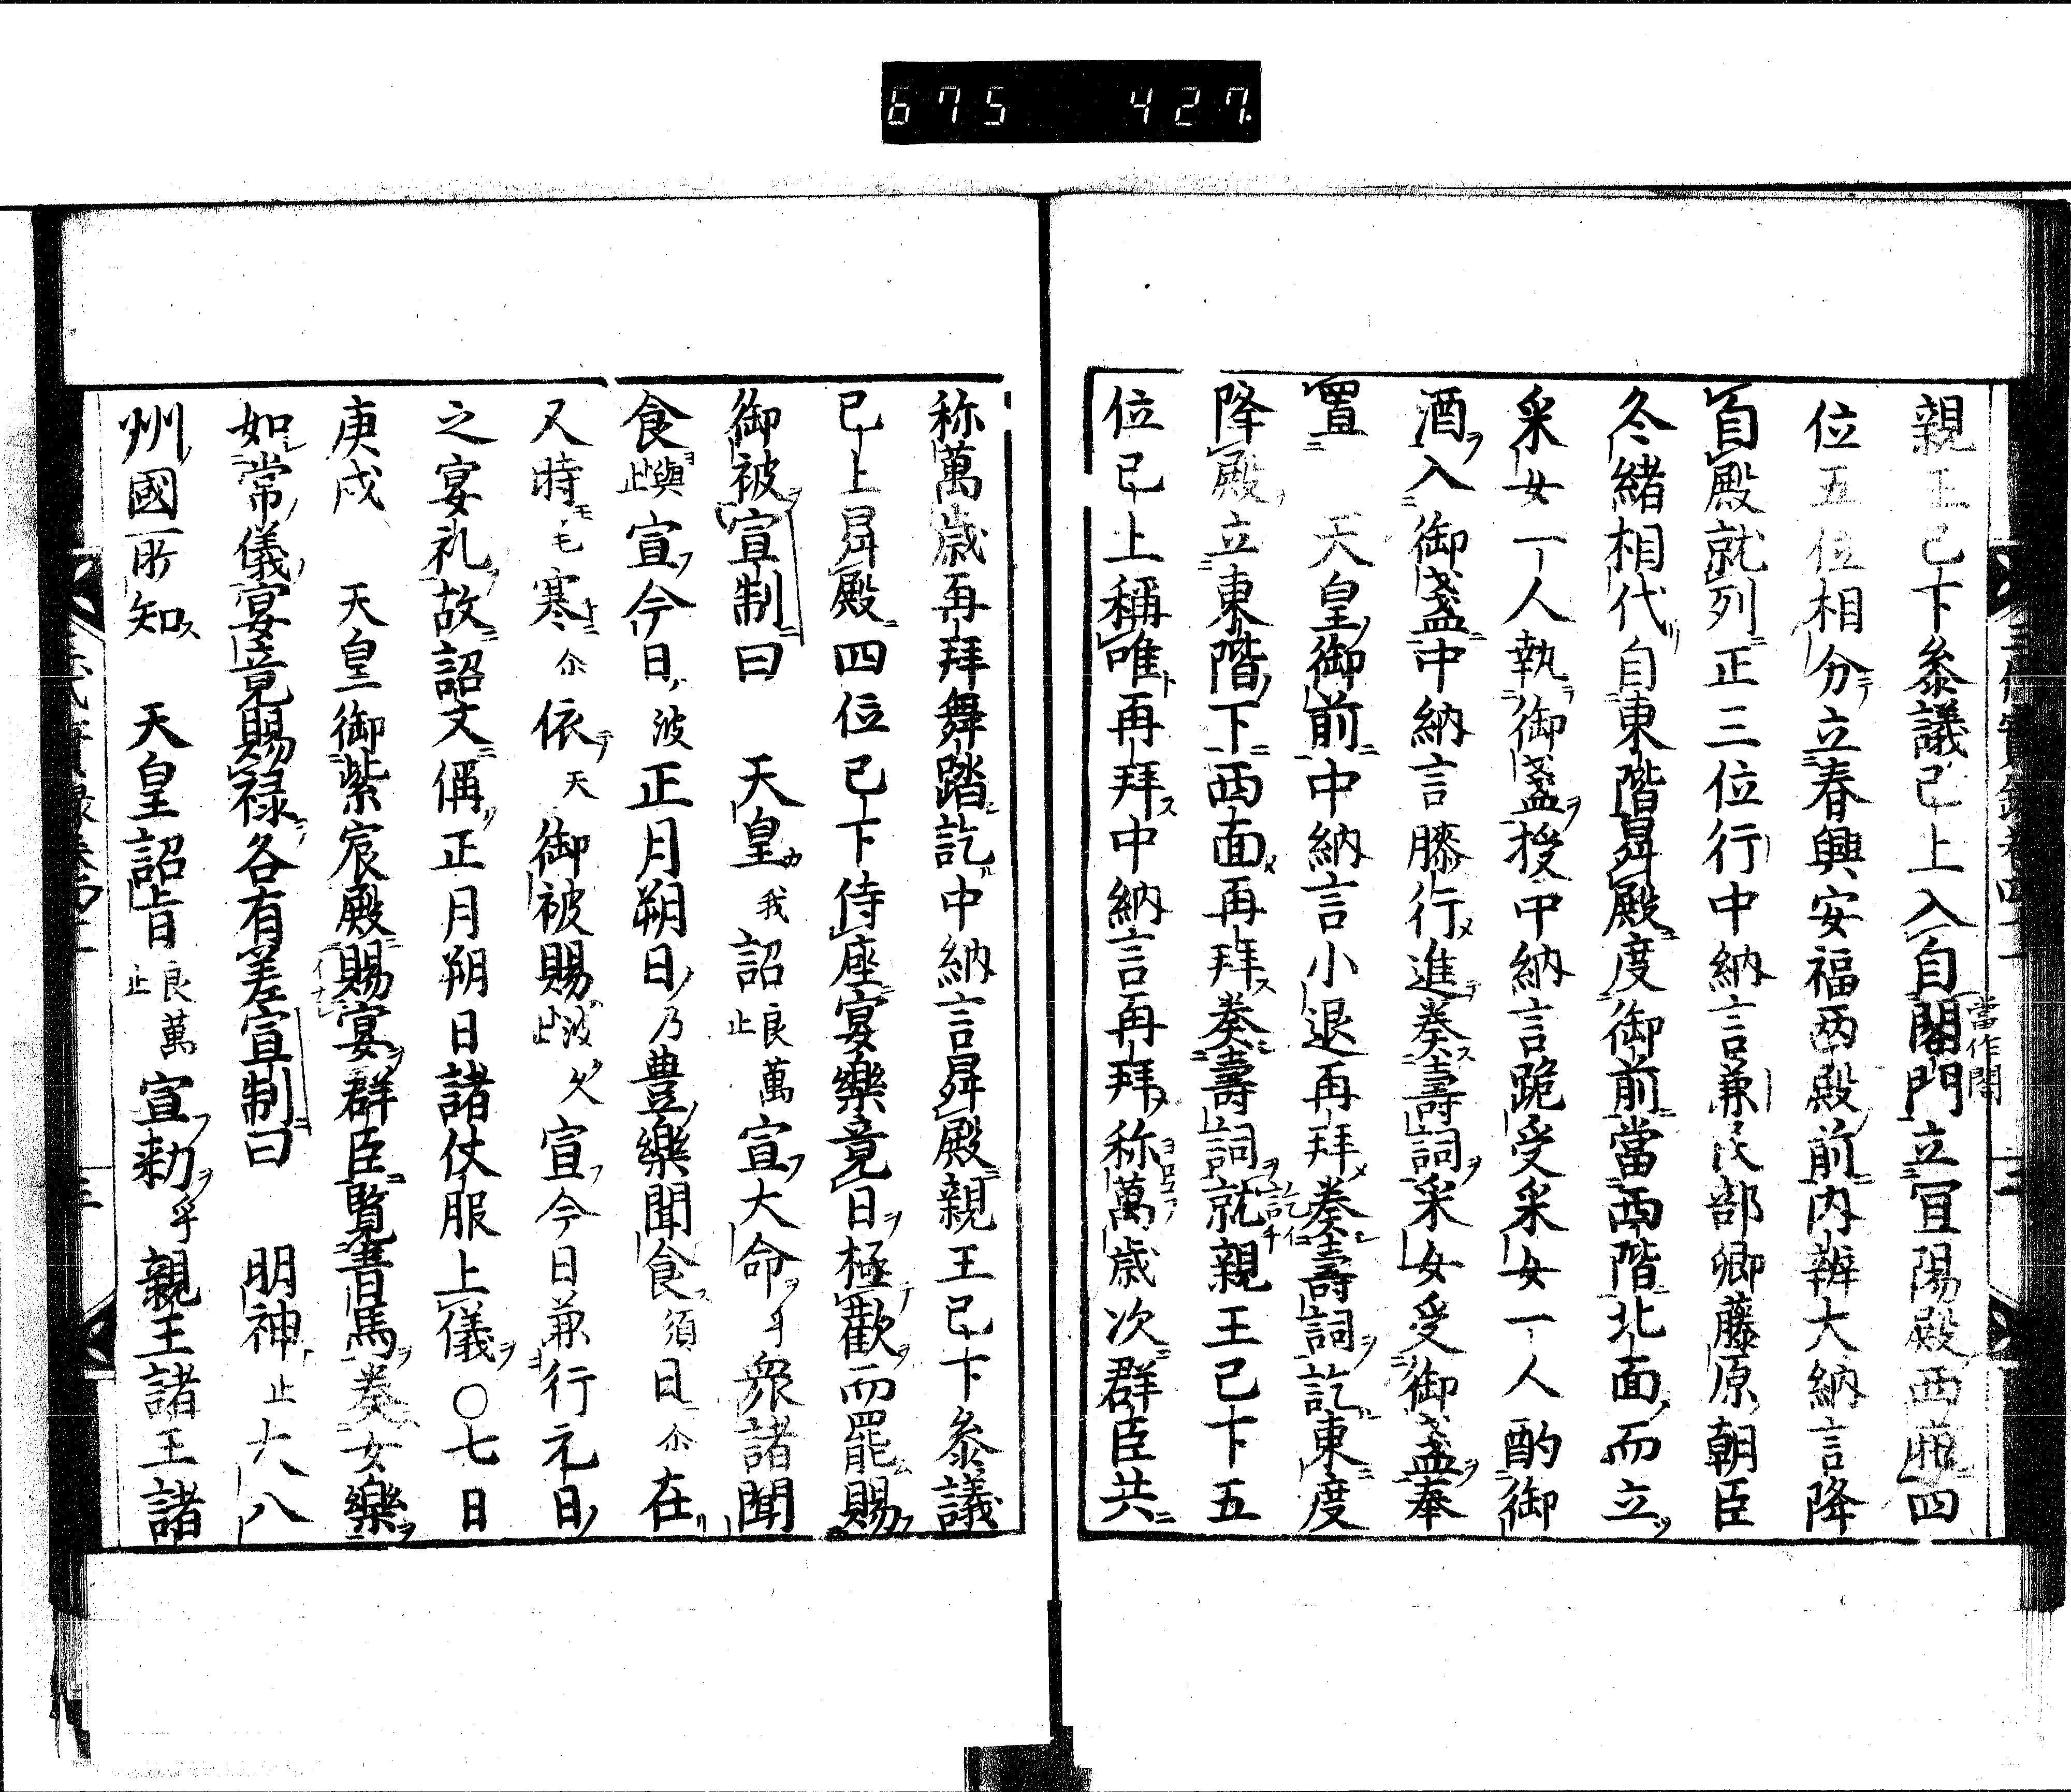 675 427.
親王已下參議已上入自閤門立宜陽殿西廂四
當作閤
位五位相分立春興安福兩殿前内辨大納言降
自殿就列正三位行中納言兼民部卿藤原朝臣
冬緒相代自東階昇殿度御前當西階北面而立
采女一人執御盞授中納言跪受采女一人酌御
酒入御盞中納言膝行進奏壽詞采女受御盞奉
置 天皇御前中納言小退再拜奏壽詞訖東度
降殿立東階下西面再拜奏壽詞就親王已下五
位已上稱唯再拜中納言再拜称萬歳次群臣共
称萬歳再拜舞踏訖中納言昇殿親王已下參議
已上昇殿四位已下侍座宴樂竟日極歡而罷賜
御被宣制曰 天皇我詔良萬止宣大命乎衆諸聞
食與止宣今日波正月朔日乃豊樂聞食須日尓在
又時毛寒尓依天御被賜波久止宣今日兼行元日
之宴礼故詔文偁正月朔日諸仗服上儀〇七日
庚戍 天皇御紫宸殿賜宴群臣覽青馬奏女樂
如常儀宴竟賜禄各有差宣制曰 明神止大八
州國所知 天皇詔旨良萬止宣勅乎親王諸王諸